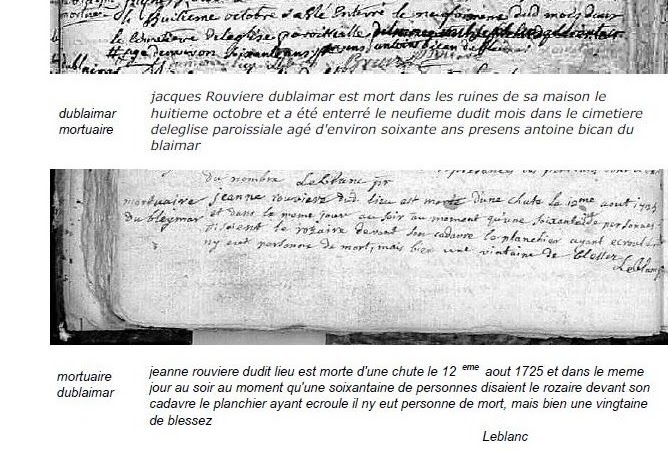 le huitieme octobre a été enterré le neufieme dudit mois dans
le cimetiere deleglise paroissiale
agé denviron soixante ans presens antoine bican du blaimar
dublaimar
mortuaire
jacques Rouviere dublaimar est mort dans les ruines de sa maison le
huitieme octobre et a été enterré le neufieme dudit mois dans le cimetiere
deleglise paroissiale agé d'environ soixante ans presens antoine bican du
blaimar
du nombre Leblanc pr
mortuaire jeanne rouviere dud. lieu est morte d'une chute le 12me aout
du bleymar et dans le meme jour au soir au moment qu'une soixantaine de personnes
disoient le rozaire devant son cadavre le planchier ayant ecroulé il
ny eut personne de mort, mais bien une vintaine de blessez
Leblanc
mortuaire
dublaimar
jeanne rouviere dudit lieu est morte d'une chute le 12 eme aout 1725 et dans le meme
jour au soir au moment qu'une soixantaine de personnes disaient le rozaire devant son
cadavre le planchier ayant ecroule il ny eut personne de mort, mais bien une vingtaine
de blessez
Leblanc